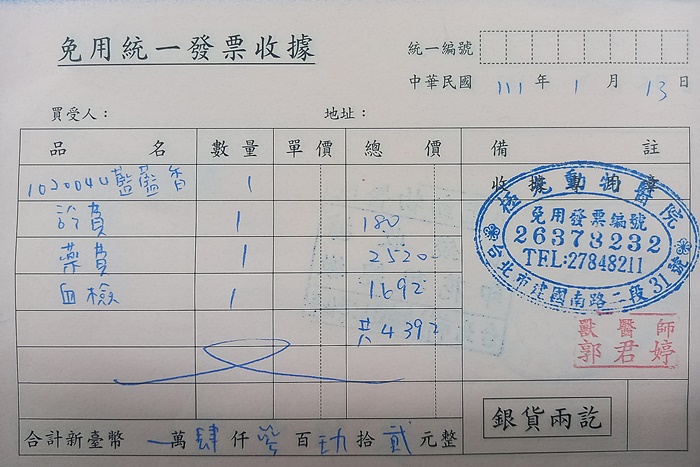 免用統一發票收據
統一編號
中華民國 111 年 1 月 13 日
買受人：
地址：
品名 數量 單價 總價 備註
收據專用章
1020044 藍藍香 1
診費 1 180
藥費 1 2520-
血檢 1 1692
共4392
極動物醫院
免用發票編號
26378232
TEL:27848211
台北市建國南路二段31號
獸醫師
郭君婷
合計新臺幣 萬 肆 仟 參 百 玖 拾 貳 元整
銀貨兩訖